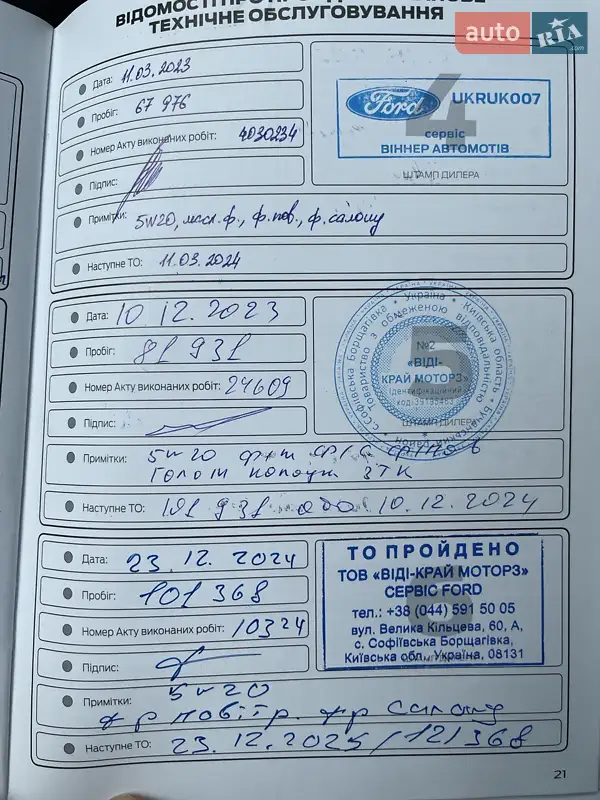 auto RIA .com
ТЕХНІЧНЕ ОБСЛУГОВУВАННЯ
Дата: 11.03.2023
Пробіг: 67 976
Номер Акту виконаних робіт: 4030234
Підпис:
Примітки: 5W20, масл.ф., ф.пов., ф.салону
Наступне ТО: 11.03.2024
4
Ford UKRUK007
сервіс
ВІННЕР АВТОМОТІВ
ШТАМП ДИЛЕРА
Дата: 10 12.2023
Пробіг: 81 931
Номер Акту виконаних робіт: 24609
Підпис:
Примітки: 5w20
Наступне ТО: 101 931 або 10.12.2024
5
Україна * Київська область
с.Софіївська Борщагівка
Товариство з обмеженою відповідальністю
№2
«ВІДІ-
КРАЙ МОТОРЗ»
Ідентифікаційний
код
ШТАМП ДИЛЕРА
Дата: 23.12.2024
Пробіг: 101 368
Номер Акту виконаних робіт: 10324
Підпис:
Примітки: 5w20
фр повітр. фр салону
Наступне ТО: 23.12.2025/121368
6
ТО ПРОЙДЕНО
ТОВ «ВІДІ-КРАЙ МОТОРЗ»
СЕРВІС FORD
тел.: +38 (044) 591 50 05
вул. Велика Кільцева, 60, А,
с. Софіївська Борщагівка,
Київська обл., Україна, 08131
21